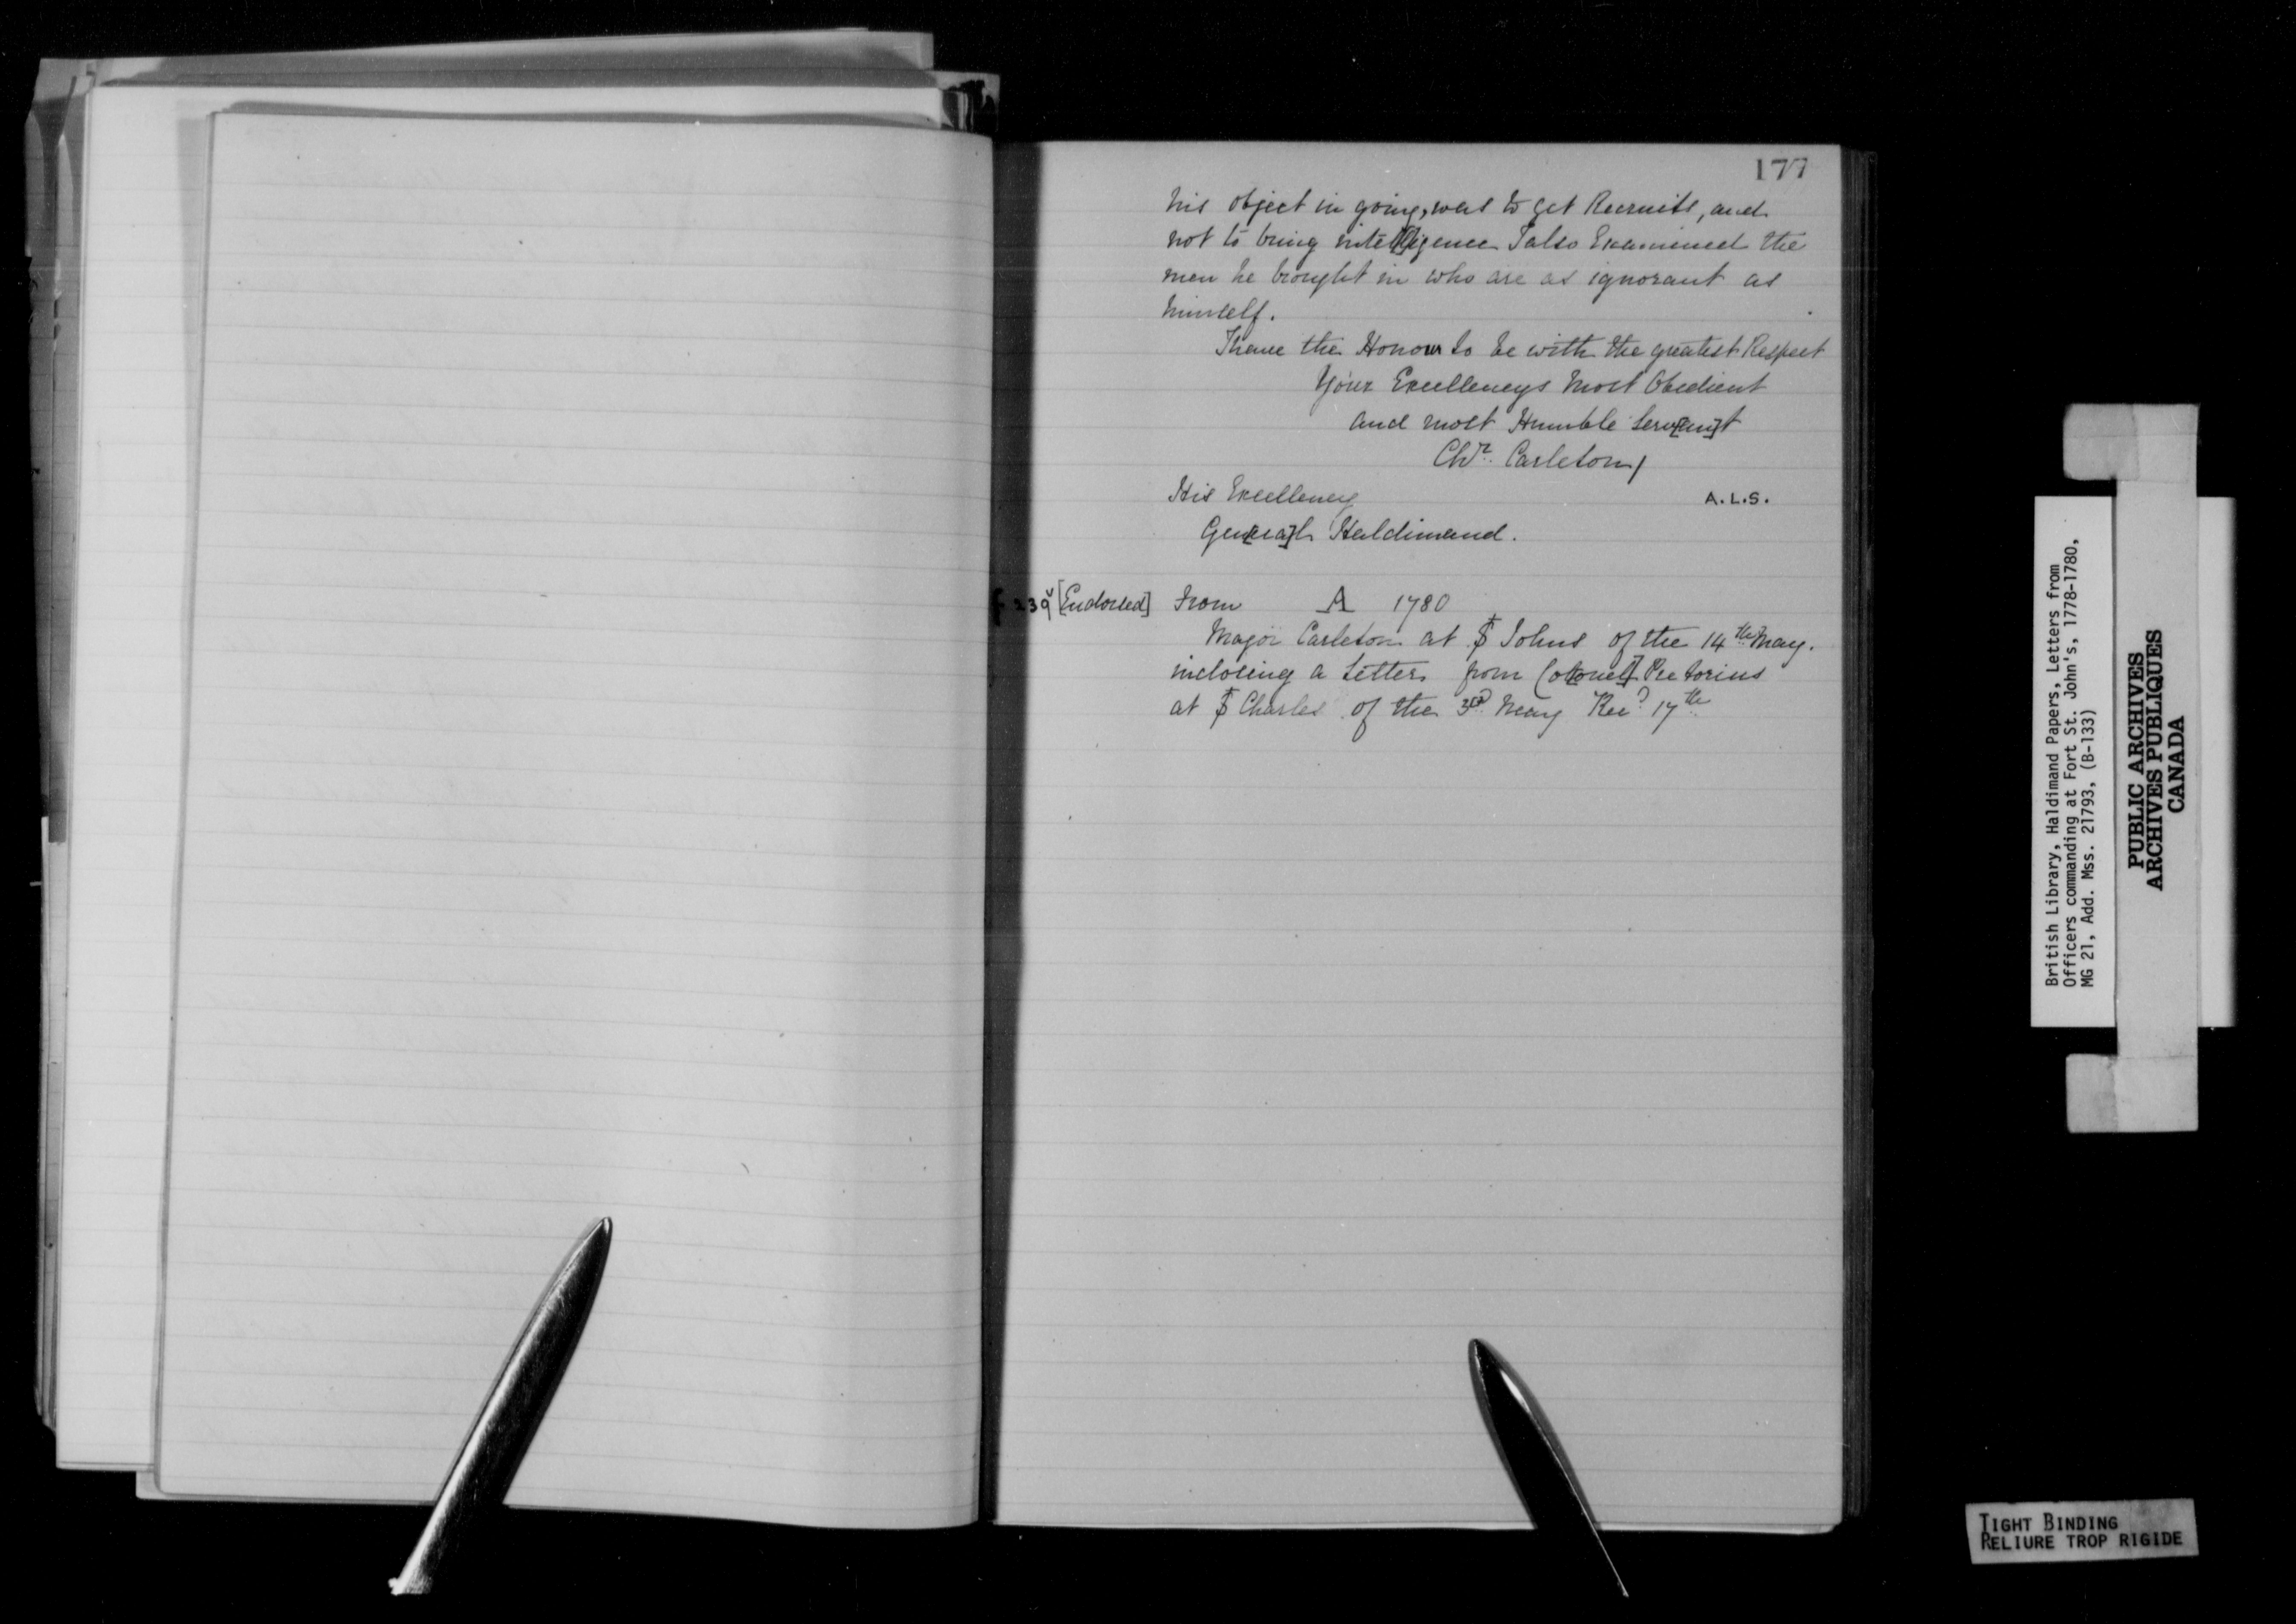 177
his object in going, was to get Recruits, and
not to bring intel[l]igence I also Examined the
men he brought in who are as ignorant as
himself.
I have the Honour to be with the greatest Respect
Your Excellencys Most Obedient
and most Humble Serv[an]t
Chr. Carleton
His Excellency
A.L.S.
Gen[era]l Haldimand.
f 239v [Endorsed] From A 1780
Major Carleton at St Johns of the 14th May.
inclosing a Letter from Col[onel] Pretorius
at St Charles of the 3rd May Recd 17th
British Library, Haldimand Papers, Letters from
Officers commanding at Fort St. John's, 1778-1780,
MG 21, Add. Mss. 21793, (B-133)
PUBLIC ARCHIVES
ARCHIVES PUBLIQUES
CANADA
TIGHT BINDING
RELIURE TROP RIGIDE